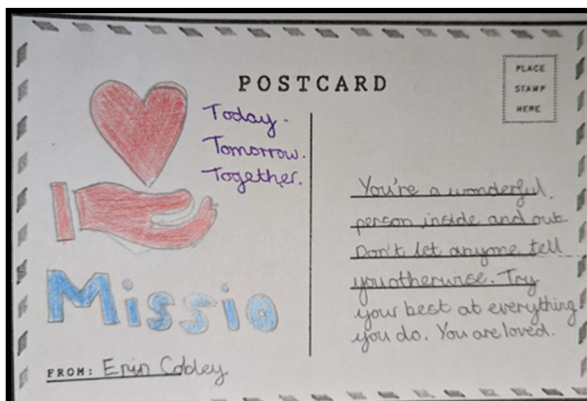 POSTCARD
PLACE
STAMP
HERE
Today.
Tomorrow.
Together.
Missio
FROM: Erin Cobley
You're a wonderful
person inside and out.
Don't let anyone tell
you otherwise. Try
your best at everything
you do. You are loved.